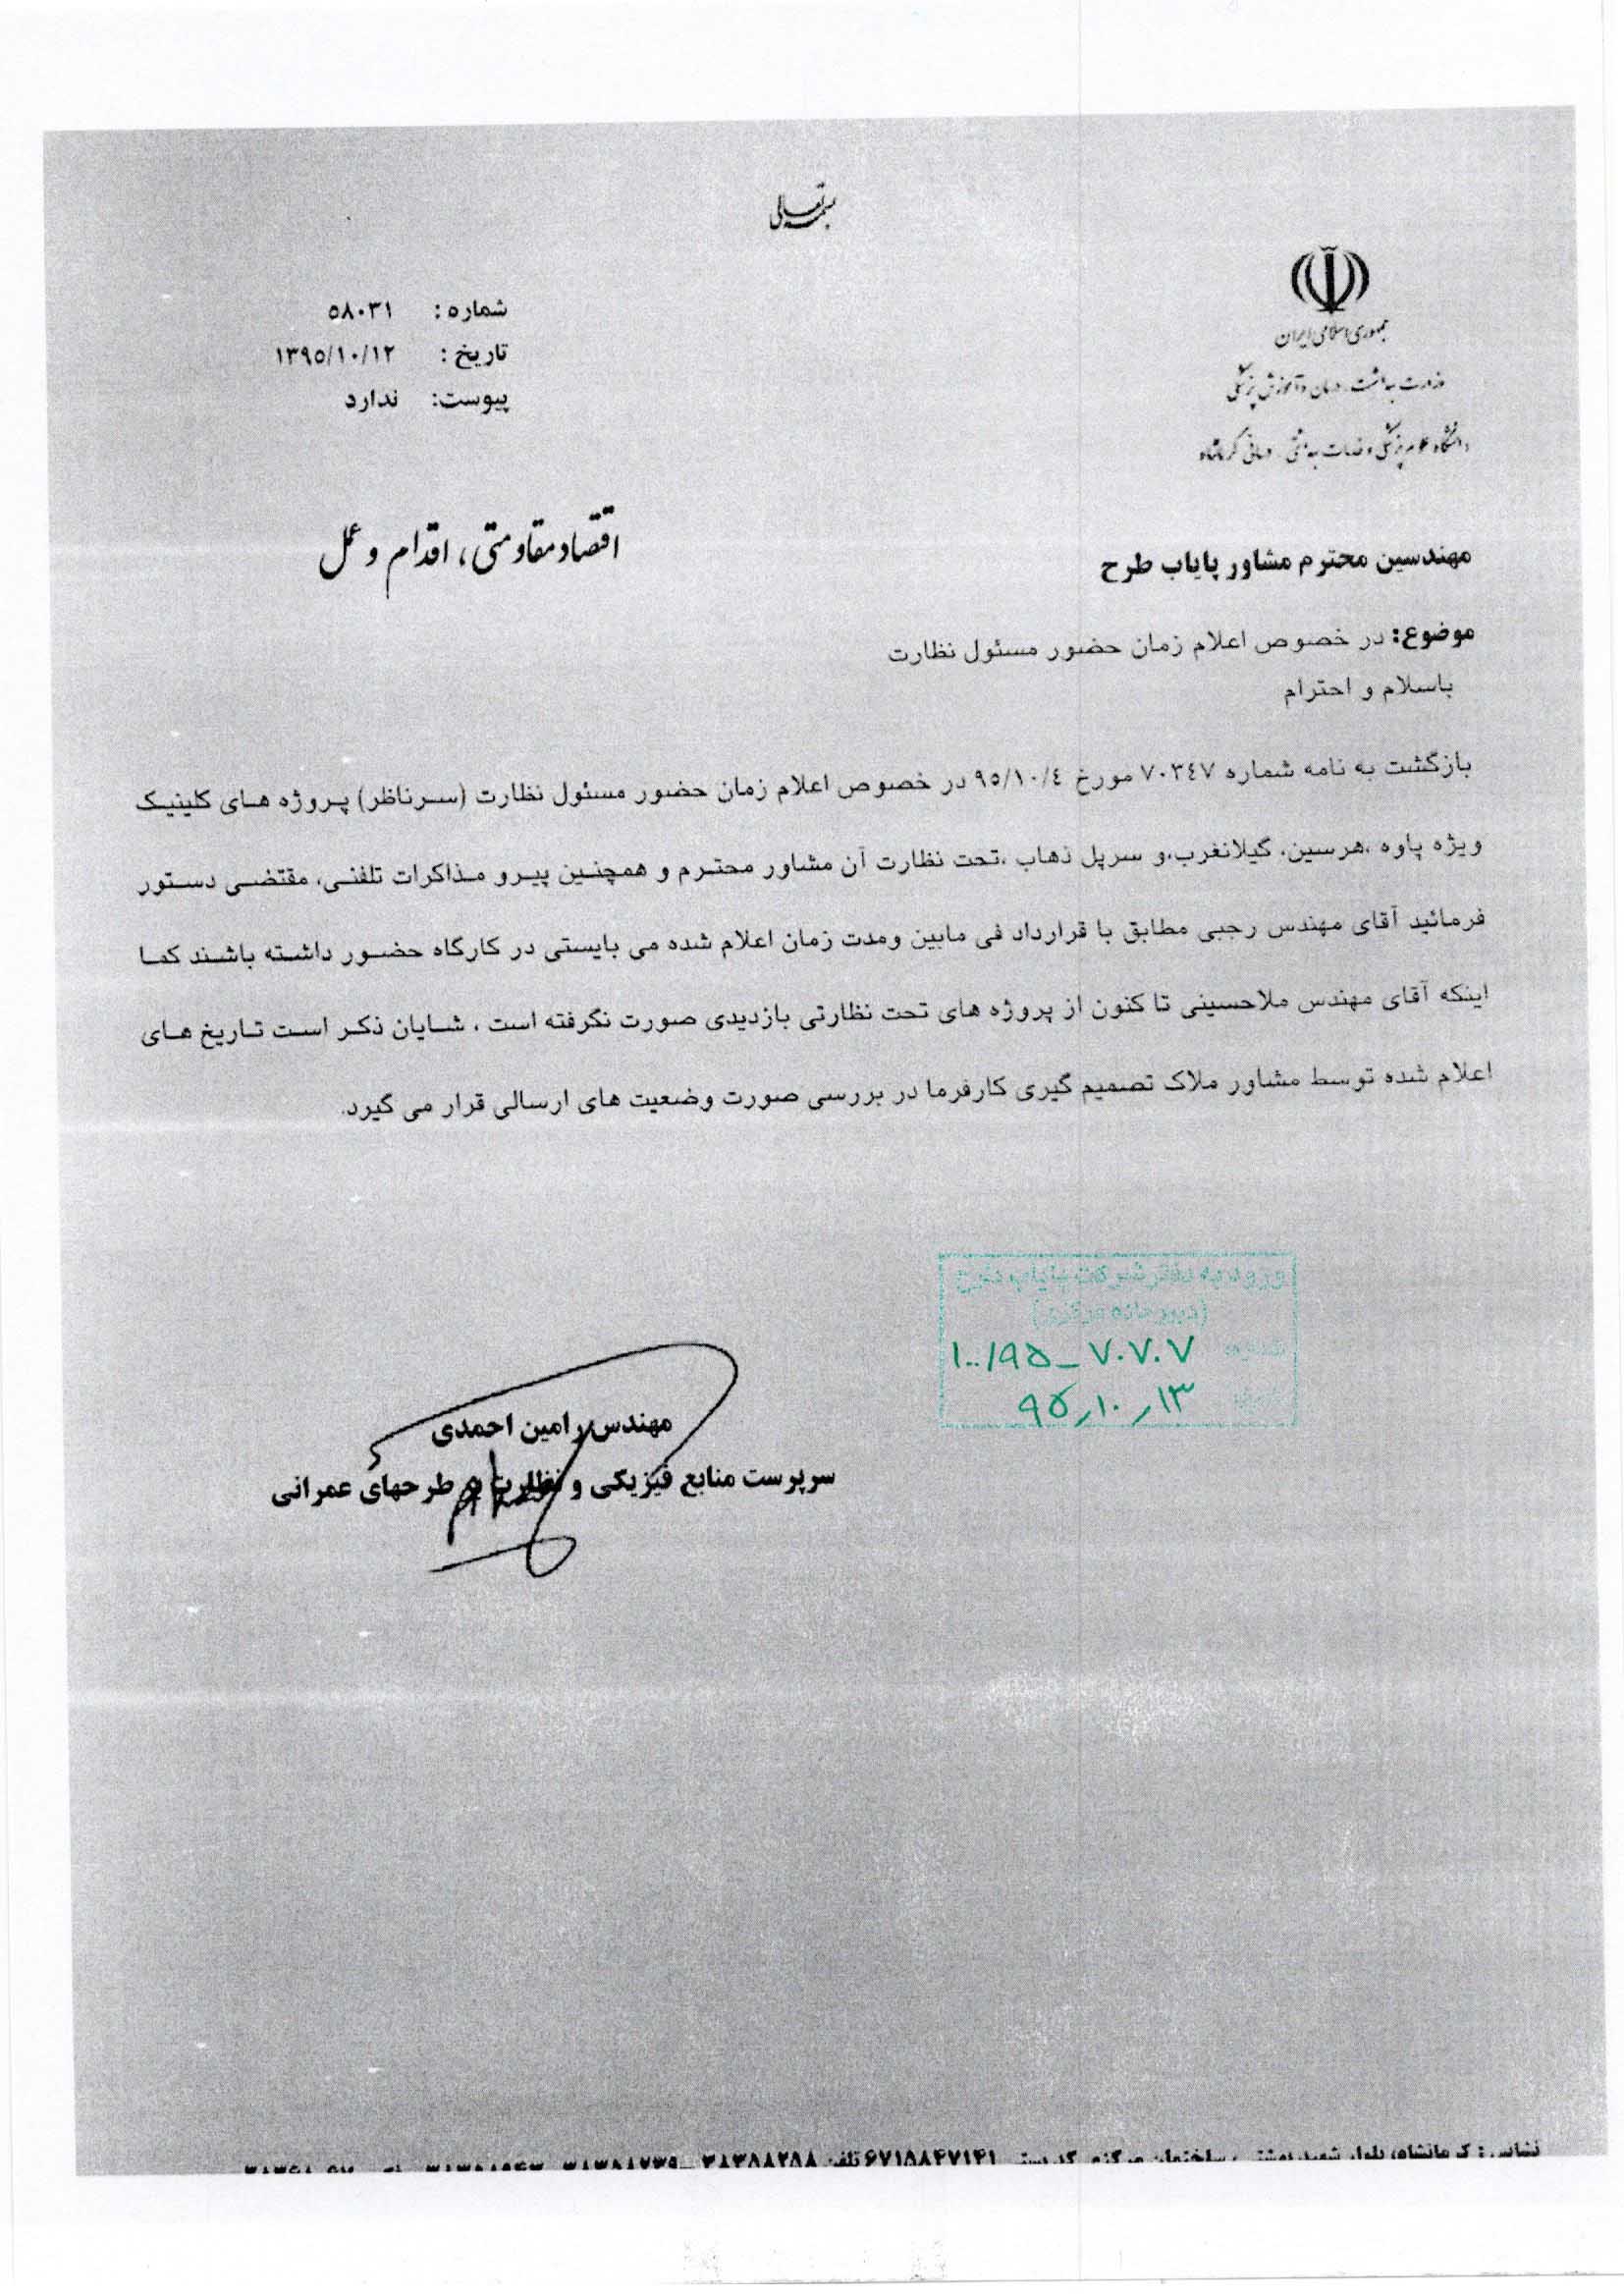 بسمه تعالی
جمهوری اسلامی ایران
وزارت بهداشت، درمان و آموزش پزشکی
دانشگاه علوم پزشکی و خدمات بهداشتی، درمانی کرمانشاه
شماره : ۵۸۰۳۱
تاریخ : ۱۳۹۵/۱۰/۱۲
پیوست: ندارد
اقتصاد مقاومتی، اقدام و عمل
مهندسین محترم مشاور پایاب طرح
موضوع: در خصوص اعلام زمان حضور مسئول نظارت
باسلام و احترام
بازگشت به نامه شماره ۷۰۳٤۷ مورخ ۹۵/۱۰/٤ در خصوص اعلام زمان حضور مسئول نظارت (سرناظر) پروژه های کلینیک
ویژه پاوه ،هرسین، گیلانغرب،و سرپل ذهاب ،تحت نظارت آن مشاور محترم و همچنین پیرو مذاکرات تلفنی، مقتضی دستور
فرمائید آقای مهندس رجبی مطابق با قرارداد فی مابین ومدت زمان اعلام شده می بایستی در کارگاه حضور داشته باشند کما
اینکه آقای مهندس ملاحسینی تا کنون از پروژه های تحت نظارتی بازدیدی صورت نگرفته است ، شایان ذکر است تاریخ های
اعلام شده توسط مشاور ملاک تصمیم گیری کارفرما در بررسی صورت وضعیت های ارسالی قرار می گیرد.
ورود به دفتر شرکت پایاب طرح
(دبیرخانه مرکزی)
شماره: ۱۰۰/۹۵-۷۰۷۰۷
تاریخ: ۹۵/۱۰/۱۳
مهندس رامین احمدی
سرپرست منابع فیزیکی و نظارت بر طرحهای عمرانی
نشانی : کرمانشاه، بلوار شهید بهشتی، ساختمان مرکزی کد پستی ۶۷۱۵۸۴۷۱۴۱ تلفن